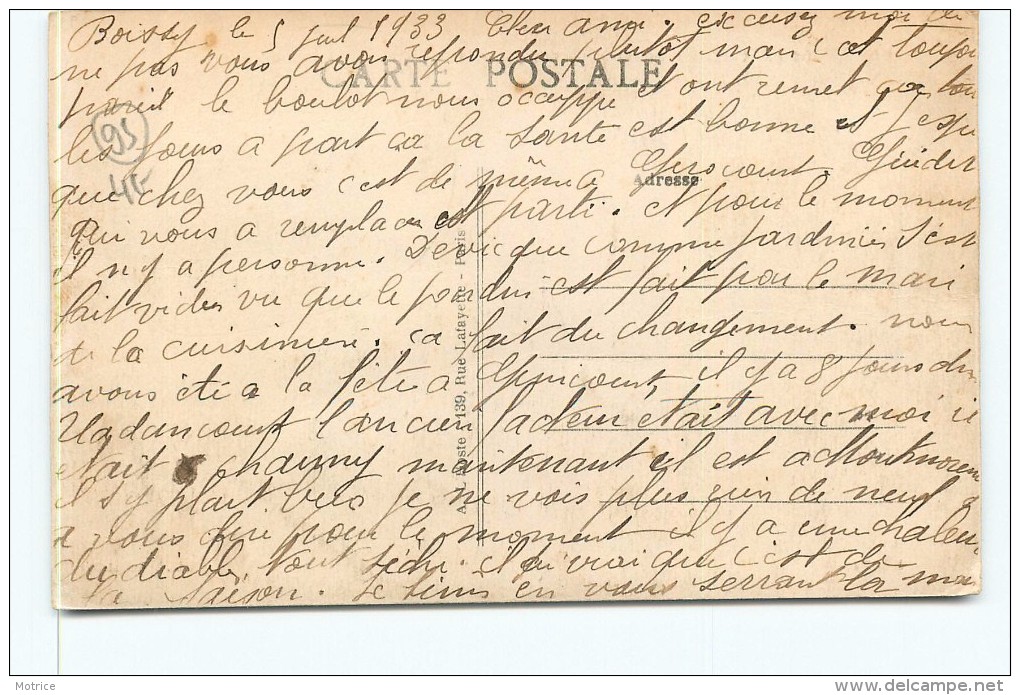 Boissy le 5 juil 1933 Cher ami. excusez moi de
ne pas vous avoir repondu plutôt mais c'est toujou
CARTE POSTALE
pareil le boulot nous occuppe et ont remet ça tou
les jours a part ça la santé est bonne et j'espe
95
4F
que chez vous c'est de même a Gerocourt.
Adresse
qui vous a remplacé est parti. et pour le moment
il n'y a personne. comme jardinier s'est
fait vider vu que le jardin est fait par le mari
de la cuisinière. ça fait du changement. nous
avons été a la fête a il y a 8 jours
l'ancien facteur était avec moi il
etait a chauny maintenant il est a Montmoren
il s'y plait bien je ne vois plus rien de neuf
a vous dire pour le moment il y a une chaleur
du diable tout sèche. il vrai que c'est de
la saison. Je finis en vous serrant la main
A. L'Hoste - 139, Rue Lafayette - Paris
Motrice
http://www.delcampe.net